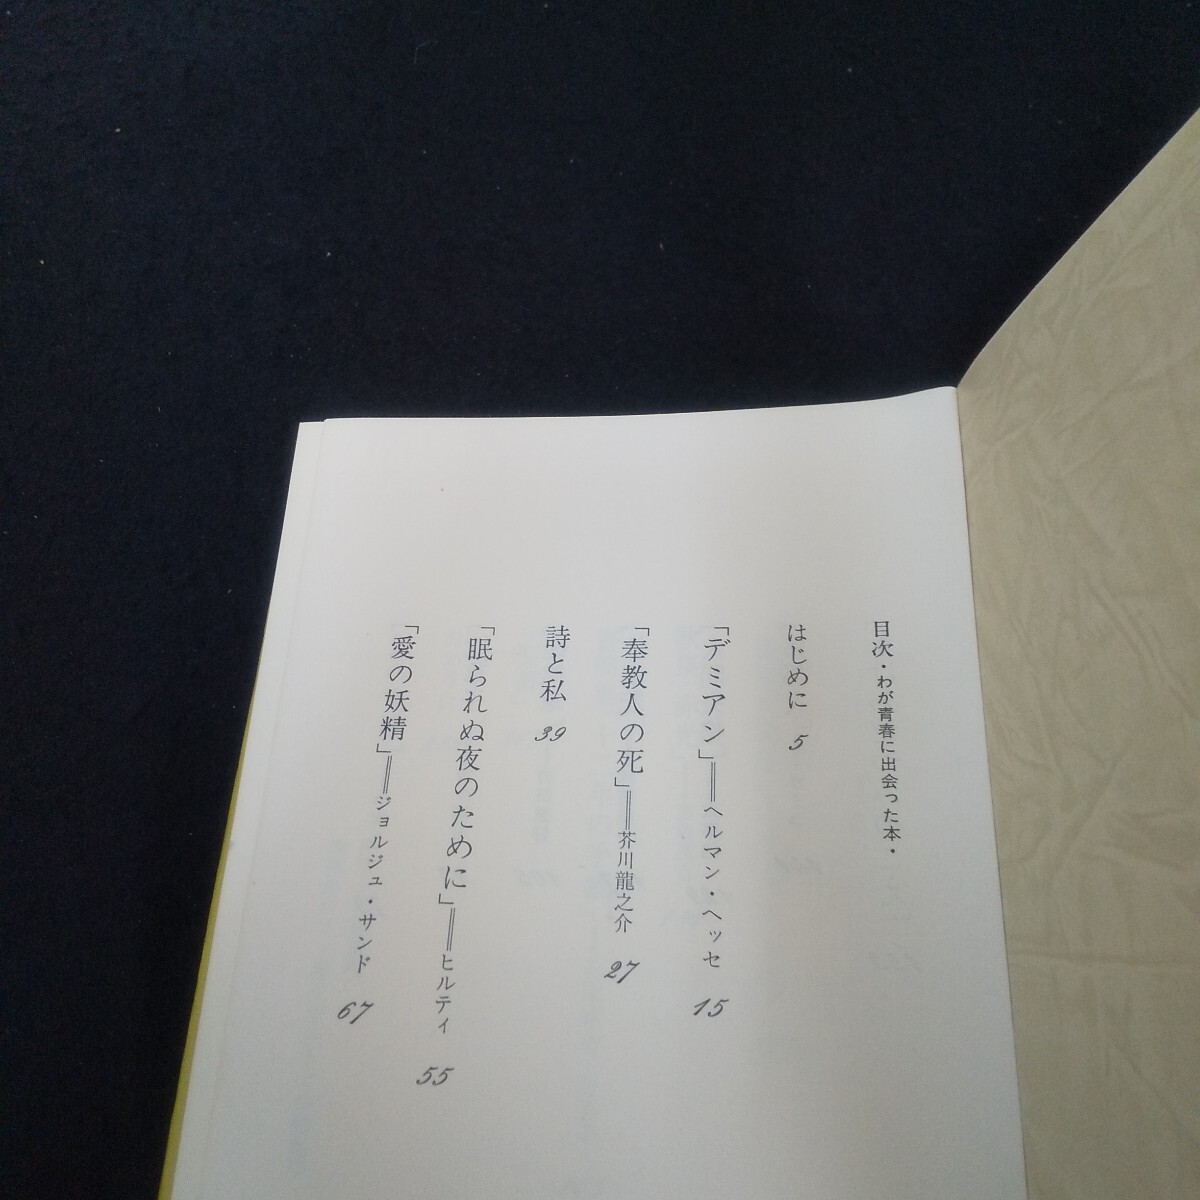 目次・わが青春に出会った本・
はじめに 5
「デミアン」＝ヘルマン・ヘッセ 15
「奉教人の死」＝芥川龍之介 27
詩と私 39
「眠られぬ夜のために」＝ヒルティ 55
「愛の妖精」＝ジョルジュ・サンド 67